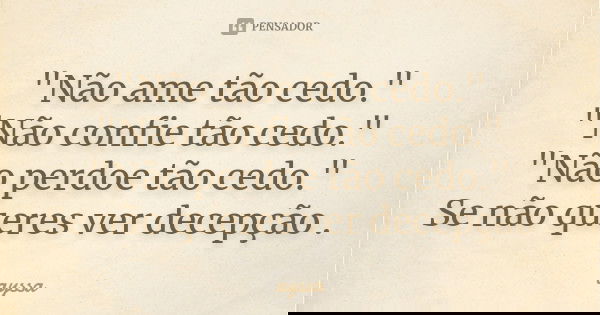 PENSADOR
"Não ame tão cedo."
"Não confie tão cedo."
"Não perdoe tão cedo."
Se não queres ver decepção .
ayssa